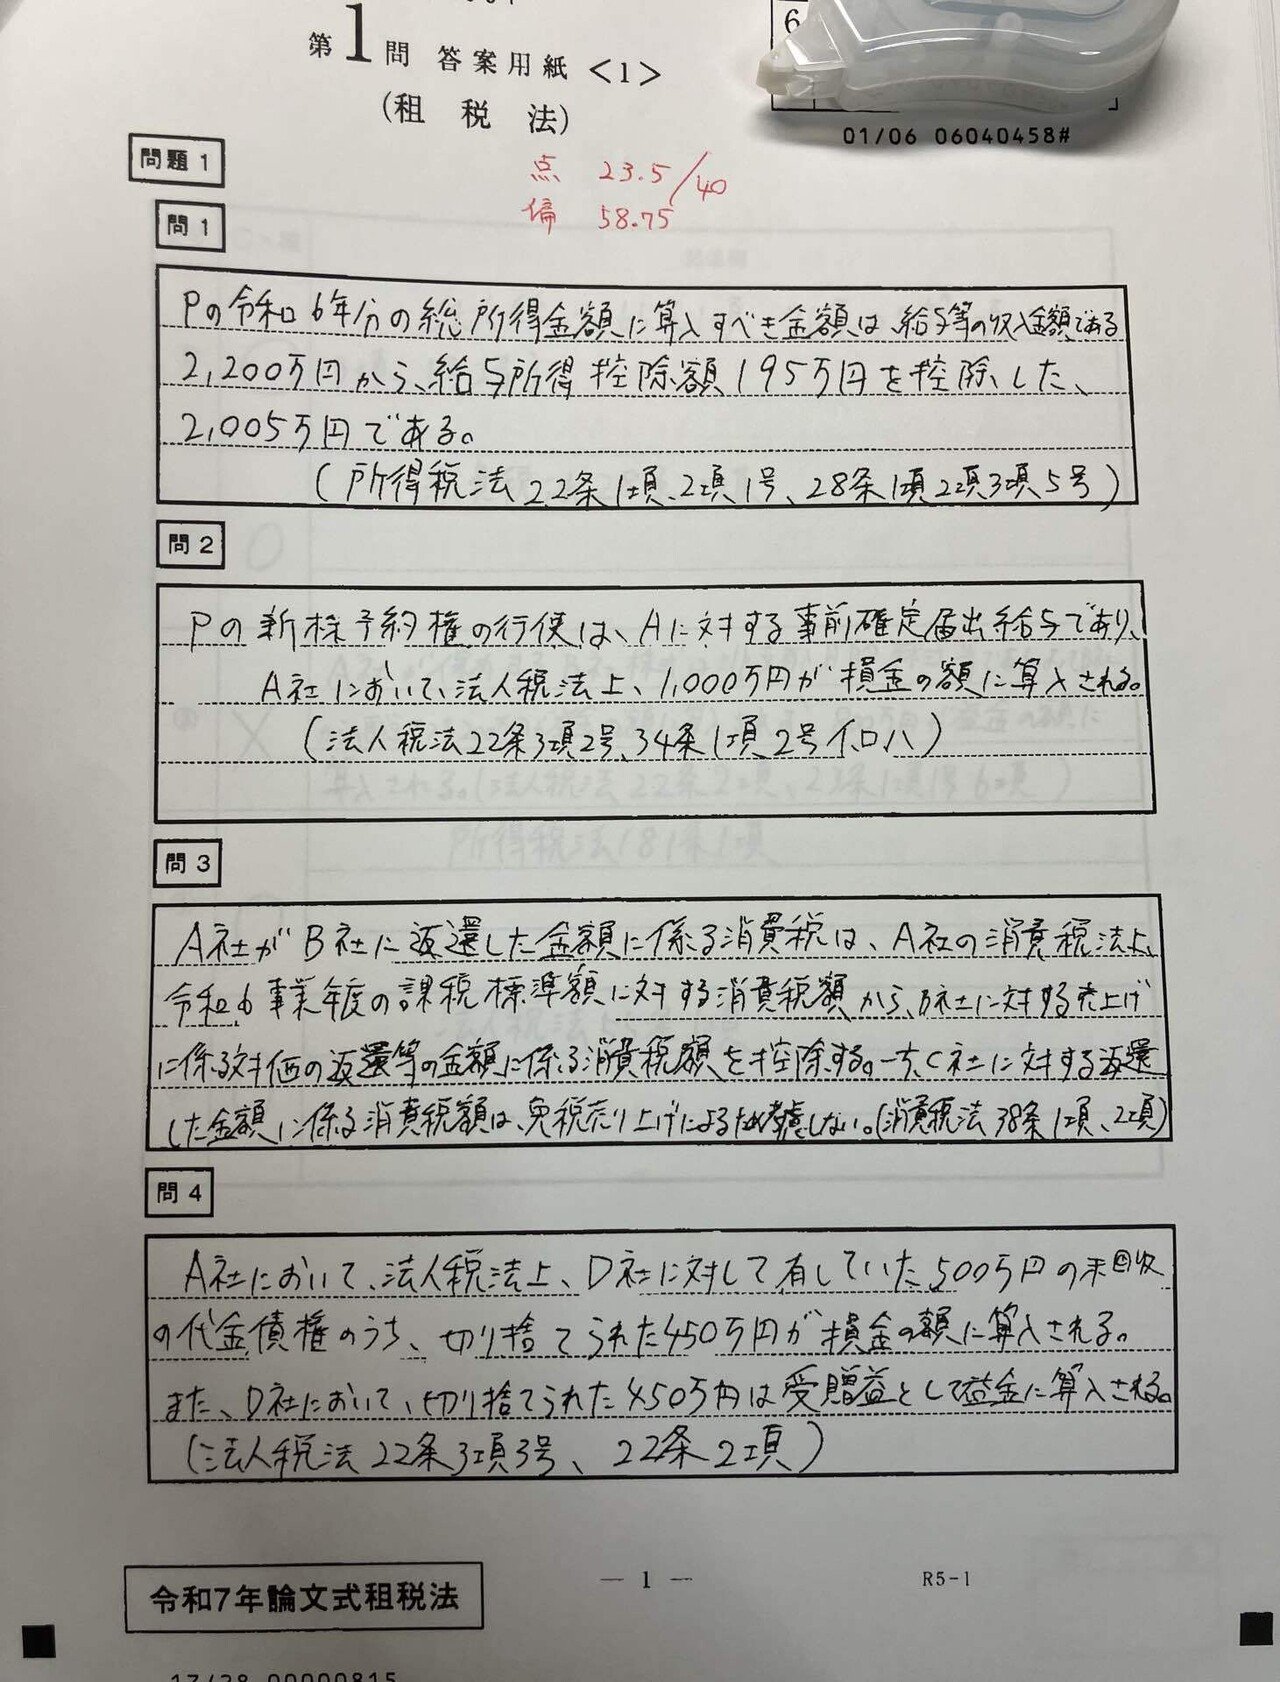 第1問 答案用紙<1>
(租税法)
6
01/06 06040458#
問題1
点 23.5/40
偏 58.75
問1
Pの令和6年分の総所得金額に算入すべき金額は、給与等の収入金額である
2,200万円から、給与所得控除額195万円を控除した、
2,005万円である。
(所得税法22条1項、2項1号、28条1項2項3項5号)
問2
Pの新株予約権の行使は、Aに対する事前確定届出給与であり、
A社において、法人税法上、1,000万円が損金の額に算入される。
(法人税法22条3項2号、34条1項2号イロハ)
問3
A社がB社に返還した金額に係る消費税は、A社の消費税法上、
令和6事業年度の課税標準額に対する消費税額から、B社に対する売上げ
に係る対価の返還等の金額に係る消費税額を控除する。一方、C社に対する返還
した金額に係る消費税額は、免税売り上げによるため考慮しない。(消費税法38条1項、2項)
問4
A社において、法人税法上、D社に対して有していた500万円の未回収
の代金債権のうち、切り捨てられた450万円が損金の額に算入される。
また、D社において、切り捨てられた450万円は受贈益として益金に算入される。
(法人税法22条3項3号、22条2項)
令和7年論文式租税法
— 1 —
R5-1